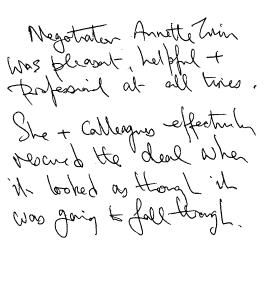 Negotiator Annette Irvin
was pleasant, helpful +
professional at all times.
She + colleagues effectively
rescued the deal when
it looked as though it
was going to fall through.